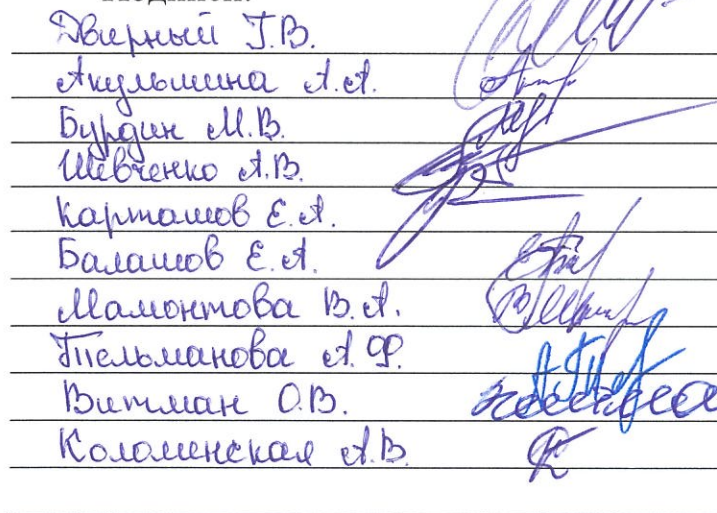 Подписи:
Дверный Т.В.
Акульшина А.А.
Бурдин М.В.
Шевченко А.В.
Карташов Е.А.
Балашов Е.А.
Мамонтова В.А.
Тельманова А.Ф.
Витман О.В.
Коломенская А.В.